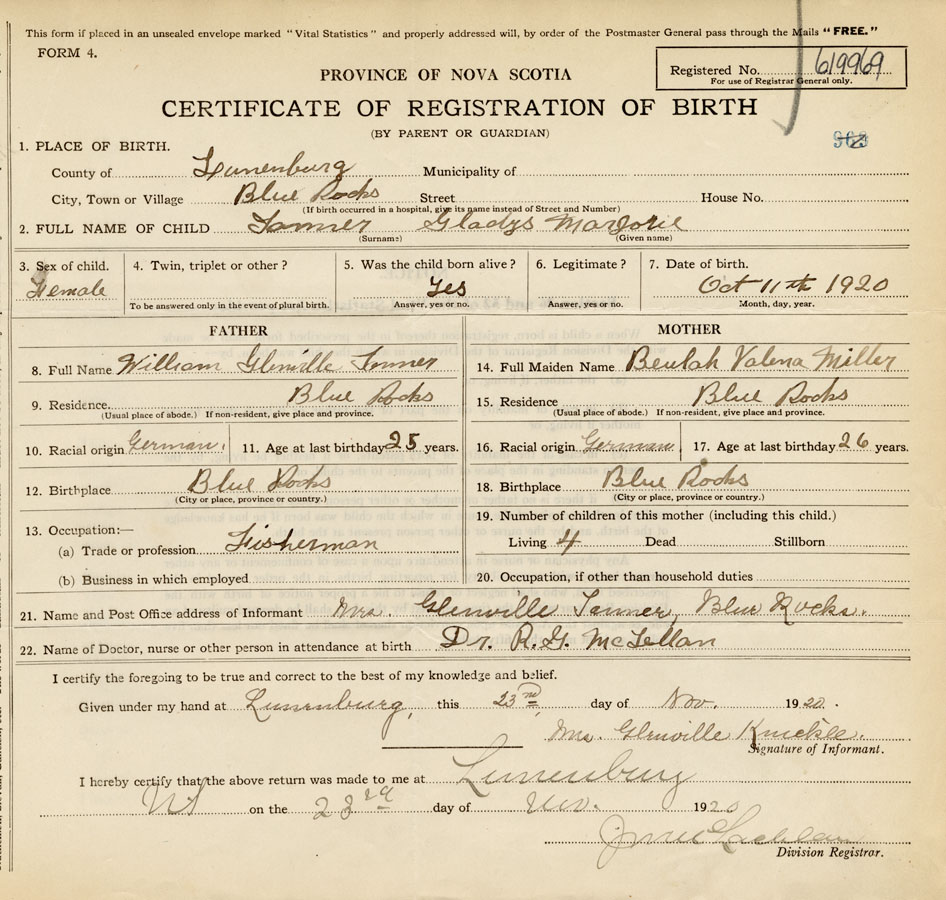 This form if placed in an unsealed envelope marked "Vital Statistics" and properly addressed will, by order of the Postmaster General pass through the Mails "FREE."
FORM 4.
Registered No. 619969
For use of Registrar General only.
PROVINCE OF NOVA SCOTIA
CERTIFICATE OF REGISTRATION OF BIRTH
(BY PARENT OR GUARDIAN)
1. PLACE OF BIRTH.
County of Lunenburg Municipality of
City, Town or Village Blue Rocks Street House No.
(If birth occurred in a hospital, give its name instead of Street and Number)
2. FULL NAME OF CHILD Tanner Gladys Marjorie
(Surname) (Given name)
3. Sex of child. 4. Twin, triplet or other? 5. Was the child born alive? 6. Legitimate? 7. Date of birth.
Female Yes Oct 11th 1920
To be answered only in the event of plural birth. Answer, yes or no. Answer, yes or no. Month, day, year.
FATHER MOTHER
8. Full Name William Glenville Tanner 14. Full Maiden Name Beulah Valena Miller
9. Residence. Blue Rocks 15. Residence Blue Rocks
(Usual place of abode.) If non-resident, give place and province. (Usual place of abode.) If non-resident, give place and province.
10. Racial origin German. 11. Age at last birthday 25 years. 16. Racial origin German 17. Age at last birthday 26 years.
12. Birthplace Blue Rocks 18. Birthplace Blue Rocks
(City or place, province or country.) (City or place, province or country.)
13. Occupation:— 19. Number of children of this mother (including this child.)
(a) Trade or profession Fisherman Living 4 Dead Stillborn
(b) Business in which employed 20. Occupation, if other than household duties
21. Name and Post Office address of Informant Mrs. Glenville Tanner, Blue Rocks.
22. Name of Doctor, nurse or other person in attendance at birth Dr. R.G. McLellan
I certify the foregoing to be true and correct to the best of my knowledge and belief.
Given under my hand at Lunenburg, this 23nd day of Nov. 1920.
Mrs. Glenville Knickle.
Signature of Informant.
I hereby certify that the above return was made to me at Lunenburg
NS on the 23rd day of Nov. 1920
Division Registrar.